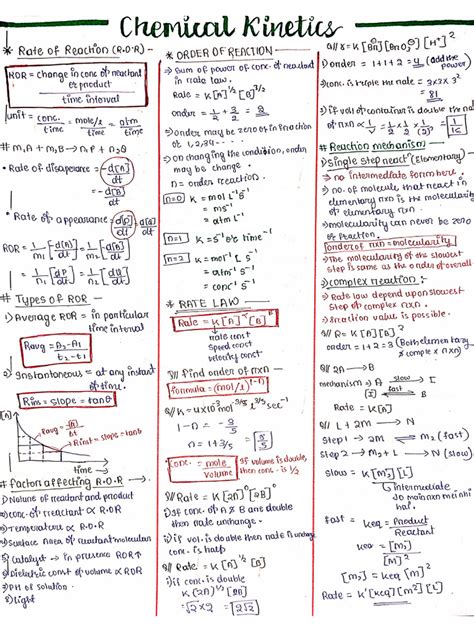 Chemical Kinetics
* Rate of Reaction (R.O.R) -
ROR = change in conc of reactant
or product
time interval
unit = conc. = mole/L = atm
time s time
# m,A + m₂B → n,P + n₂Q
• Rate of disaperance = -d[A]
dt
= -d[B]
dt
• Rate of appearance = d[P] = d[Q]
dt dt
ROR = 1 -d[A] = 1 -d[B]
m₁ dt m₂ dt
= 1 d[P] = 1 d[Q]
n₁ dt n₂ dt
# Types of ROR -
1) Average ROR = in particular
time interval
Ravg = A₂-A1
t₂-t1
2) Instantaneous = at any instant
of time.
Rins = slope = tanθ
Rinst = slope = tanθ
time →
# Factors affecting R.O.R -
1) Nature of reactant and product
2) conc. of reactant ∝ R.O.R
3) Temperature ∝ R.O.R
4) Surface area of reactant molecules
5) Catalyst → in presence ROR↑
6) Dielectric const of volume ∝ ROR
7) PH of solution
8) light
* ORDER OF REACTION -
⇒ Sum of power of conc. of reactant
in rate law.
Rate = K[A]^1/2 [B]^3/2
order = 1/2 + 3/2 = 4/2 = 2
⇒ order may be zero or in fraction
or 1,2,3....
⇒ on changing the condition, order
may be change.
n = order reaction.
n=0 K = mol L⁻¹s⁻¹
= ms⁻¹
= atm s⁻¹
n=1 K = s⁻¹ or time⁻¹
n=2 K = mol⁻¹ L s⁻¹
= atm⁻¹ s⁻¹
= conc⁻¹ s⁻¹
* RATE LAW -
Rate = K[A]^α [B]^β
rate const
speed const
velocity const
Q/// find order of rxn
formula = (mol/L)^(1-n)
1-n = -2/3
n = 1+2/3 = 5/3
conc. = mole
volume
If volume is double,
then conc. is 1/2
Q// Rate = K[A]⁰[B]⁰
i) If conc of A & B are double then
rate unchange.
conc. is half
Q// Rate = K[A]^1/2 [B]
i) if conc is double
= √2×2 = 2√2
order = 1+1+2 = 4 (add the
power)
i) conc. is triple the rate = 3×3×3²
= 81
ii) if vol of container is double the rate
of rxn ∝ 1/V = 1/2 × 1/2 × (1/2)² = 1/16
# Reaction mechanism -
1) single step react (Elementary) -
⇒ no intermediate form here.
⇒ no. of molecule that react in
elementary rxn is the molecularity
of elementary rxn.
⇒ molecularity can never be zero
or fraction.
order of rxn = molecularity
⇒ The molecularity of the slowest
step is same as the order of overall
2) complex reaction:-
⇒ Rate law depend upon slowest
step of complex rxn.
⇒ fraction value is possible.
Q// R = K[A]¹[B]²
order = 1+2 = 3 (Both elementary
& complex rxn)
Q// 2A → B
mechanism ⇒ A slow I
fast B
Rate = K[A]
Q// L + 2M → N
Step 1 → 2M ⇌ M₂ (fast)
Step 2 → M₂ + L → N (slow)
slow = K[M₂][L]
intermediate
fast = Keq = Product
Reactant
Keq = [M₂]
[M]²
[M₂] = Keq [M]²
Rate = K'Keq[M]²[L]